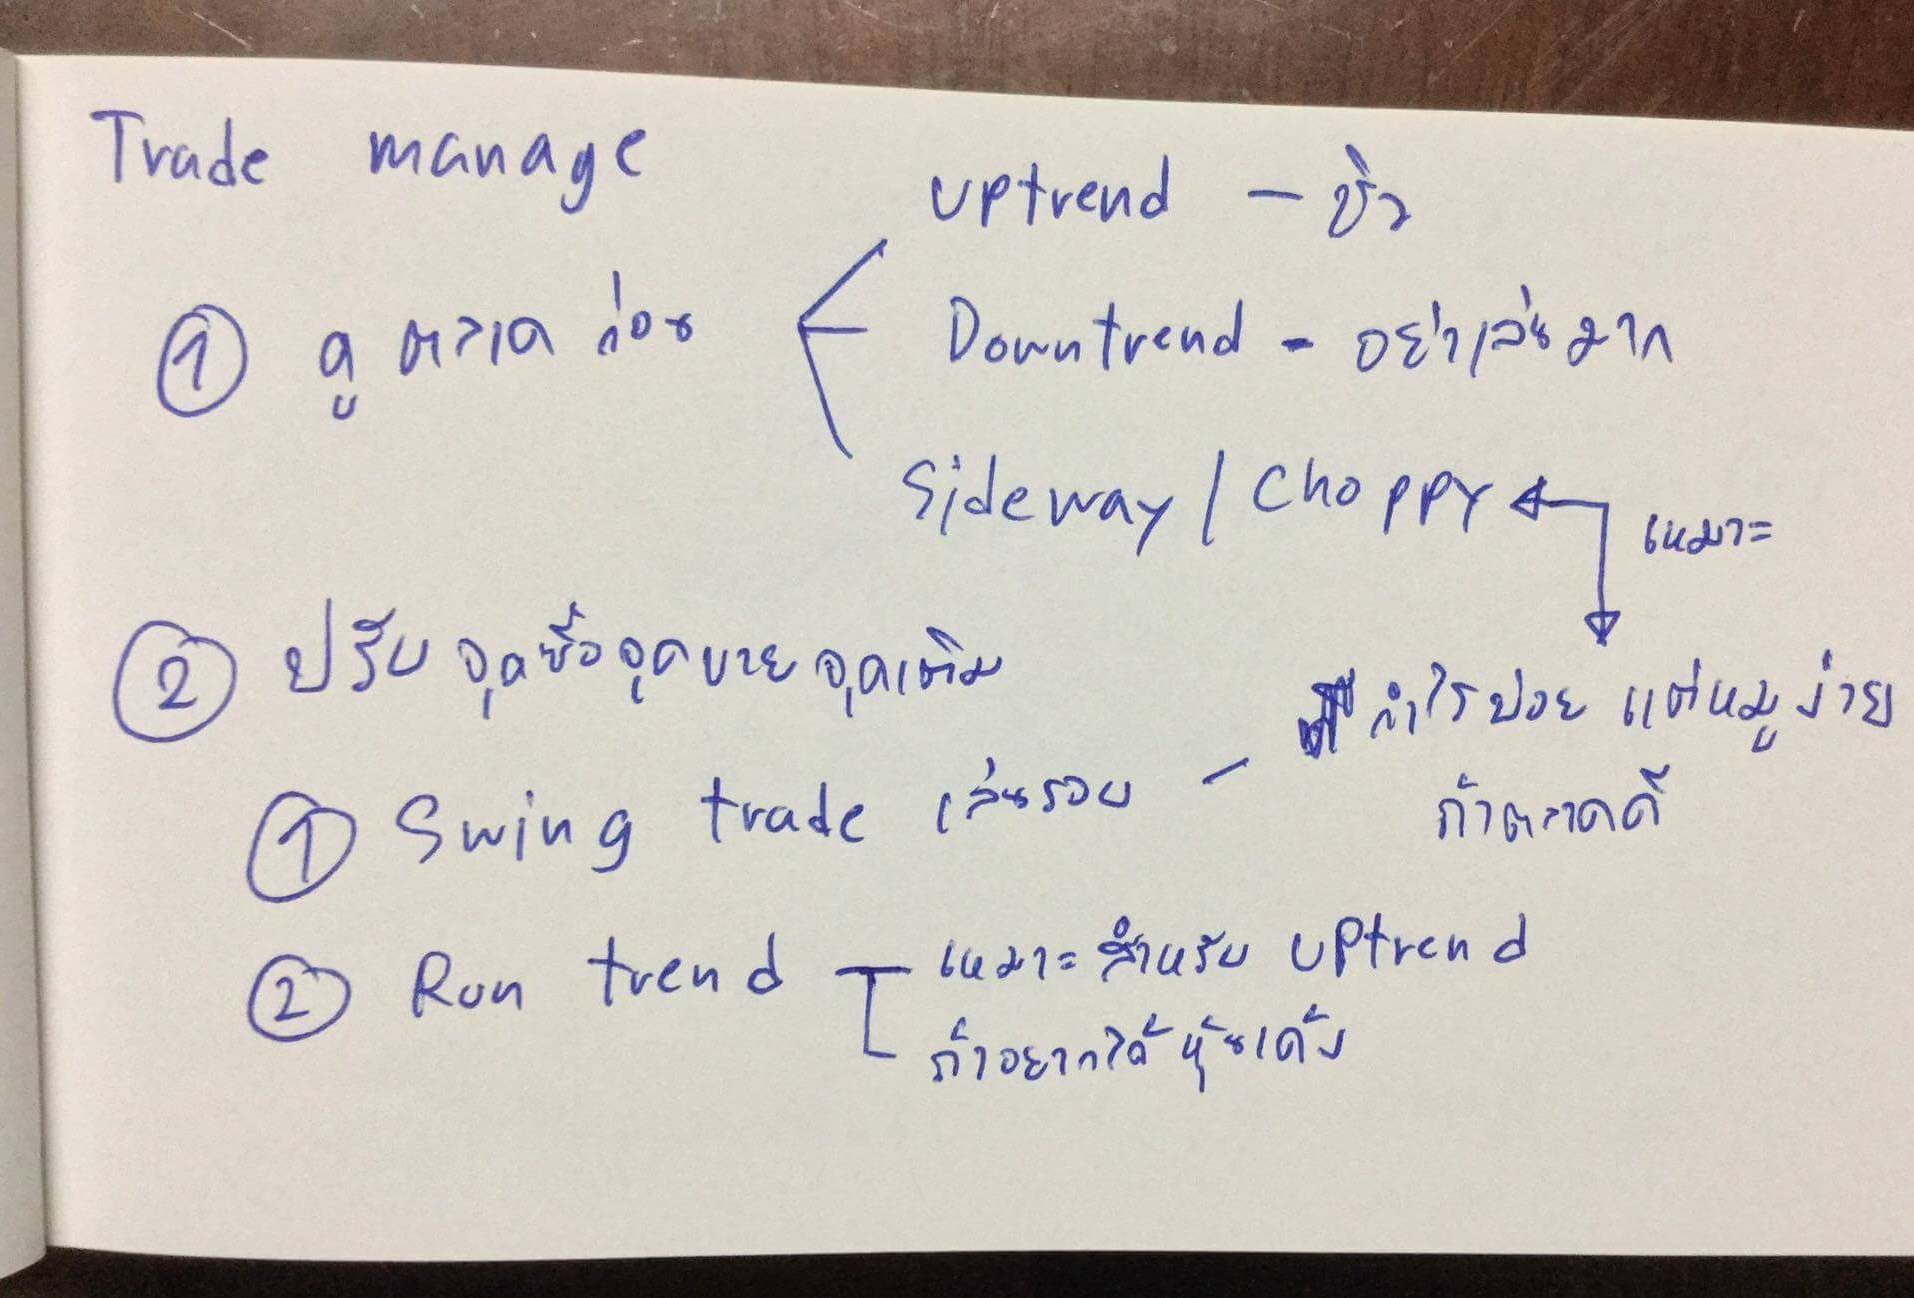 Trade manage
① ดูตลาดก่อน
Uptrend - ชิว
Downtrend - อย่าเล่นมาก
Sideway / Choppy
เหมาะ
② ปรับจุดซื้อจุดขายจุดเติม
① Swing trade เล่นรอบ - กำไรบ่อย แต่หมูง่าย
ถ้าตลาดดี
② Run trend - เหมาะสำหรับ uptrend
ถ้าอยากได้หุ้นเด้ง